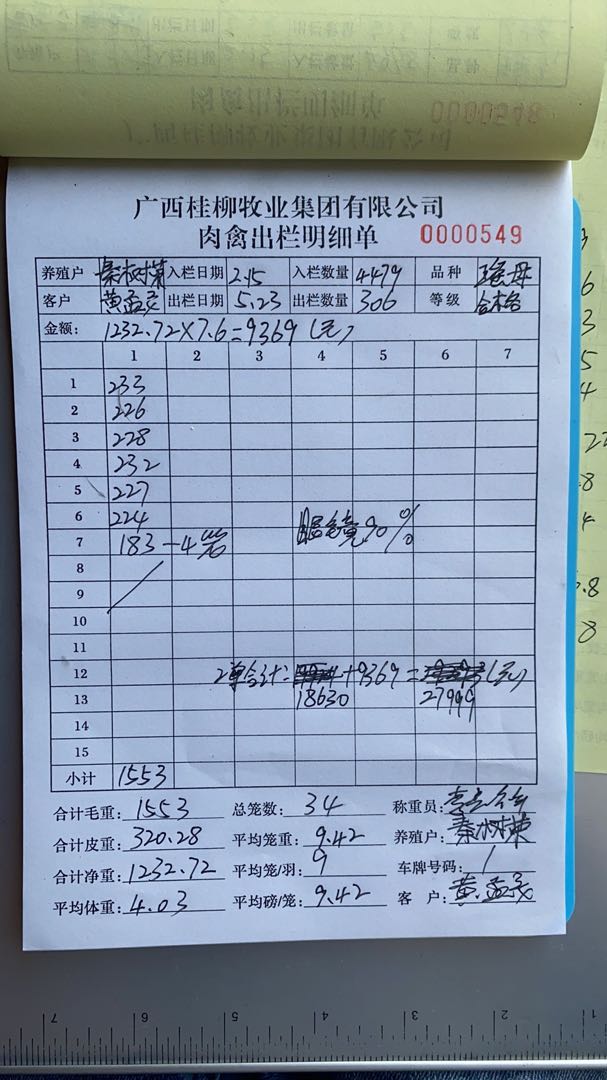 0000548
广西桂柳牧业集团有限公司
肉禽出栏明细单 0000549
养殖户 秦树荣 入栏日期 2.15 入栏数量 4479 品种
客户 黄孟灵 出栏日期 5.23 出栏数量 306 等级 合格
金额: 1232.72×7.6=9369(元)
1 2 3 4 5 6 7
1 233
2 226
3 228
4 232
5 227
6 224 90%
7 183-4笼
8
9
10
11
12 2单合计: +9369= (元)
13 18630 27999
14
15
小计 1553
合计毛重: 1553 总笼数: 34 称重员:
合计皮重: 320.28 平均笼重: 9.42 养殖户: 秦树荣
合计净重: 1232.72 平均笼/羽: 9 车牌号码: /
平均体重: 4.03 平均磅/笼: 9.42 客 户: 黄孟灵
7 6 5 4 3 2 1